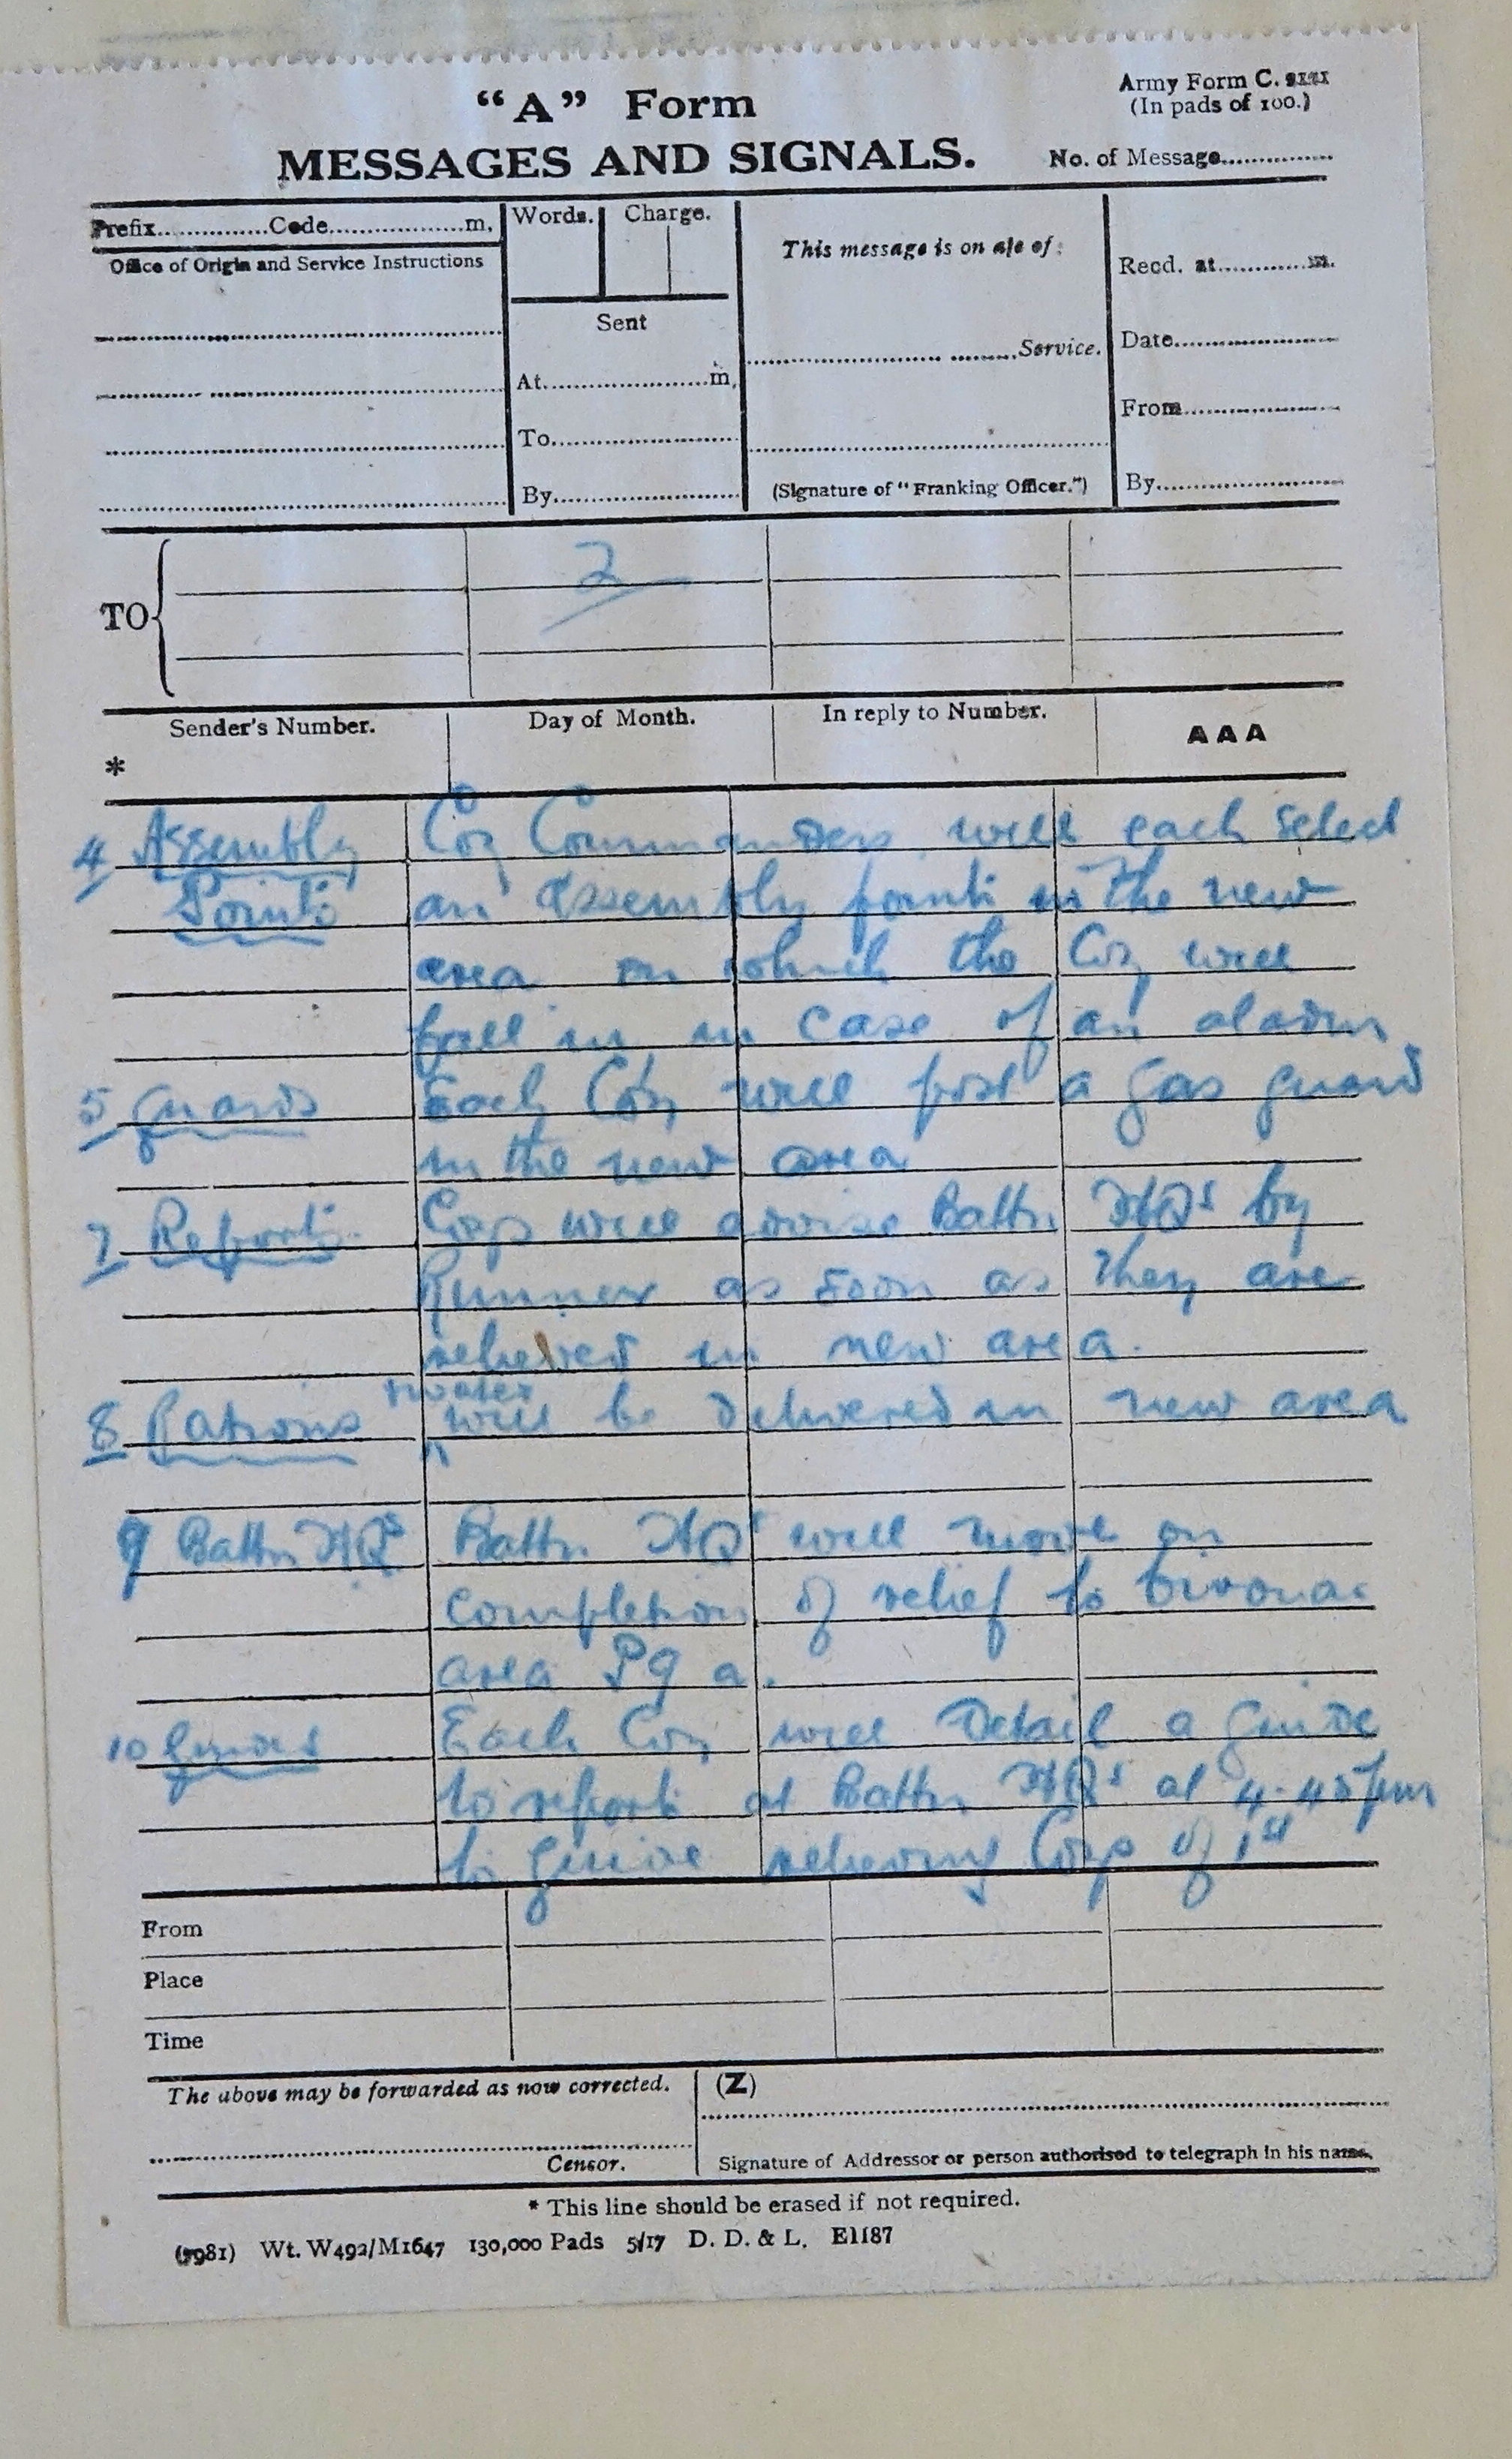 "A" Form
Army Form C. 2121
(In pads of 100.)
MESSAGES AND SIGNALS.
No. of Message
Prefix Code m,
Words. Charge.
This message is on a/c of:
Recd. at m.
Office of Origin and Service Instructions
Sent
Service.
Date
At m,
From
To
By
(Signature of "Franking Officer.")
By
TO
2
Sender's Number. Day of Month. In reply to Number. AAA
*
4 Assembly Coy Commanders will each select
Points an assembly point in the new
area on which the Coy will
fall in in case of an alarm
5 Guards Each Coy will post a gas guard
in the new area
7 Reports. Coys will advise Battn HQs by
Runner as soon as they are
relieved in new area.
& water
8 Rations will be delivered in new area
9 Battn HQs Battn HQs will move on
completion of relief to bivouac
area P9 a.
10 Guides Each Coy will Detail a guide
to report at Battn HQs at 4.45 pm
to guide relieving Coys of 1st
From
Place
Time
The above may be forwarded as now corrected. (Z)
Censor. Signature of Addressor or person authorised to telegraph in his name.
* This line should be erased if not required.
(7981) Wt. W492/M1647 130,000 Pads 5/17 D. D. & L. E1187